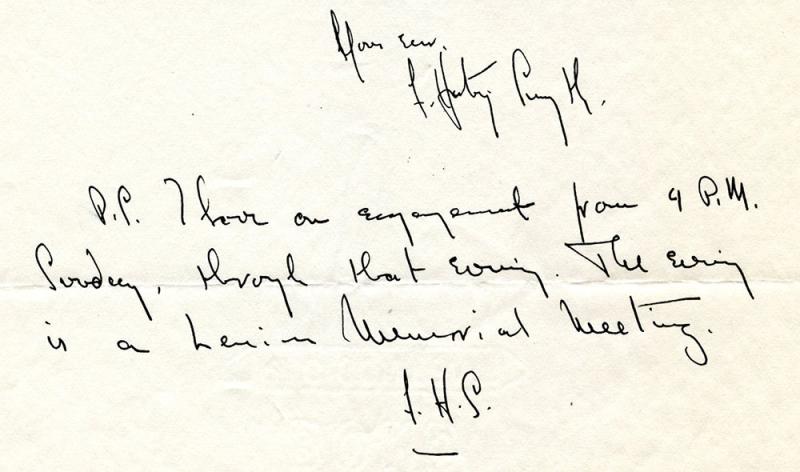 Yours ever,
F. Hastings Smyth.
P.S. I have an engagement from 4 P.M.
Sunday, through that evening. The evening
is a Lenin Memorial Meeting.
F.H.S.